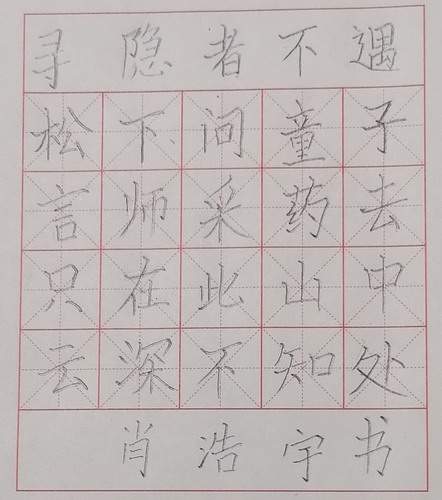 寻隐者不遇
松下问童子
言师采药去
只在此山中
云深不知处
肖浩宇书